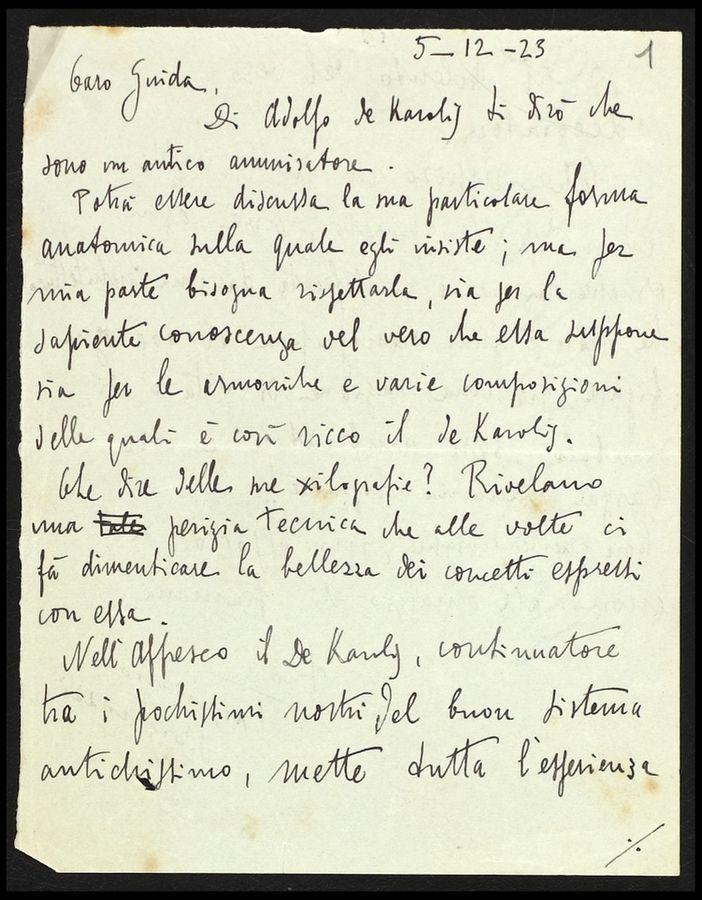 5-12-23 1
Caro Guida,
Di Adolfo de Karolis ti dirò che
sono un antico ammiratore.
Potrà essere discussa la sua particolare forma
anatomica sulla quale egli insiste; ma per
mia parte bisogna rispettarla, sia per la
sapiente conoscenza del vero che essa suppone
sia per le armoniche e varie composizioni
delle quali è così ricco il de Karolis.
Che dire delle sue xilografie? Rivelano
una tale perizia tecnica che alle volte ci
fà dimenticare la bellezza dei concetti espressi
con essa.
Nell'Affresco il De Karolis, continuatore
tra i pochissimi nostri del buon sistema
antichissimo, mette tutta l'esperienza
./.